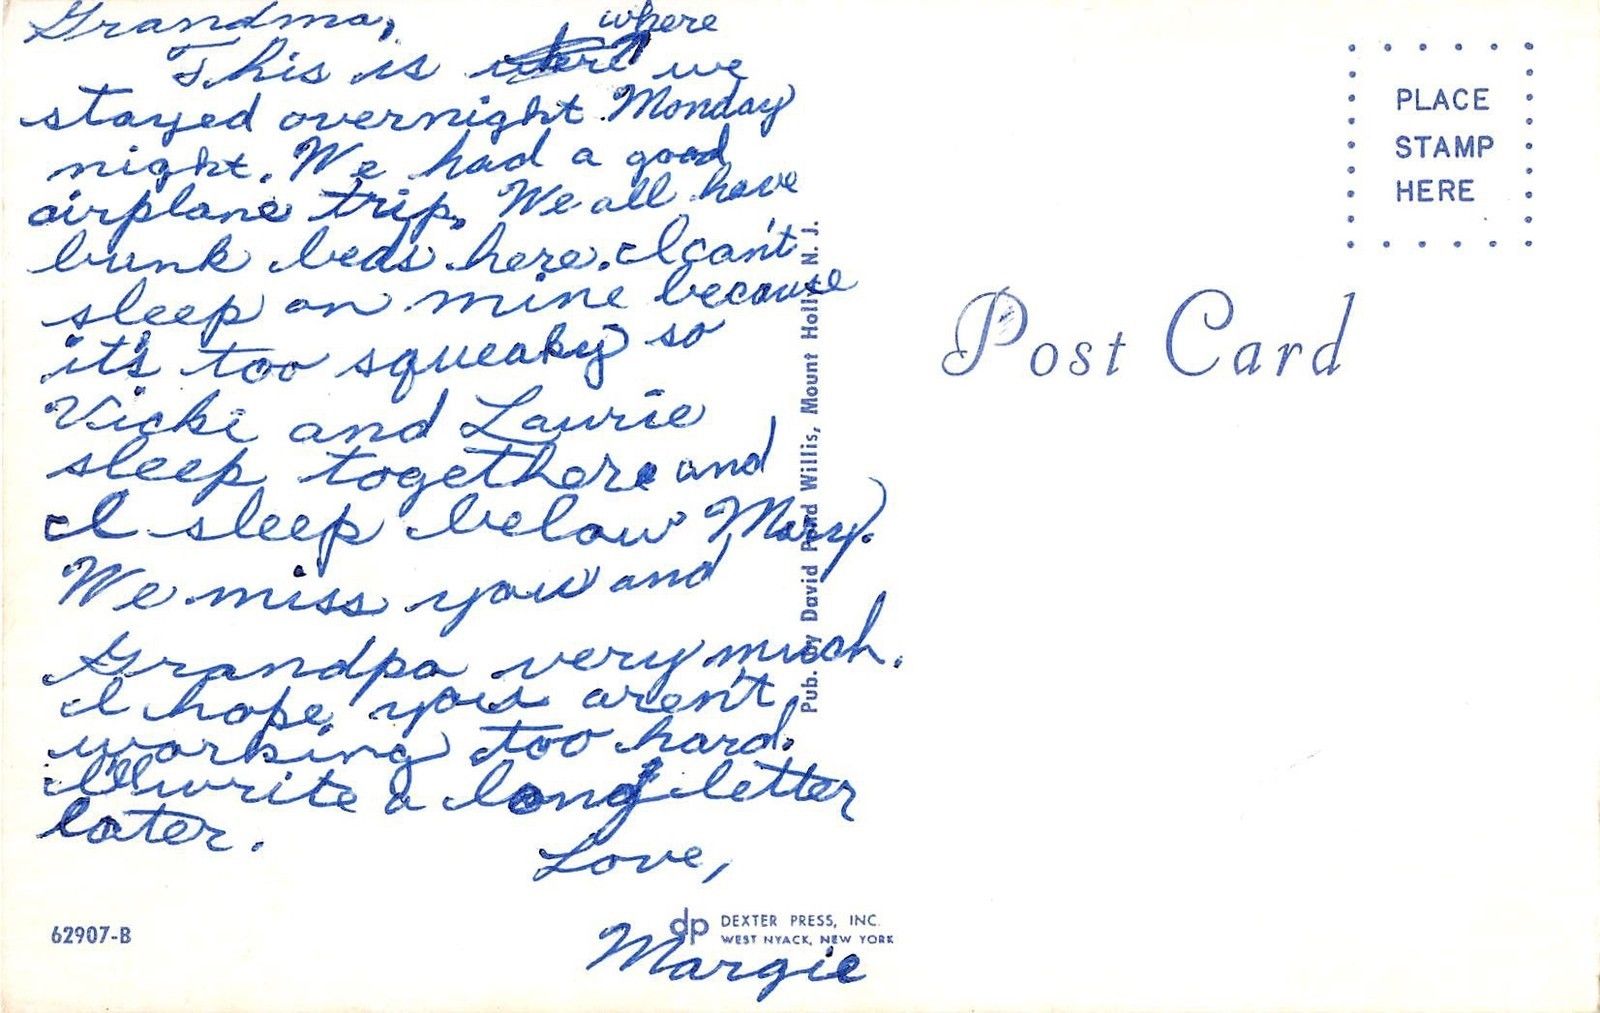 Grandma,
This is where we
stayed overnight Monday
night. We had a good
airplane trip. We all have
bunk beds here. I can't
sleep on mine because
it's too squeaky so
Vicki and Laurie
sleep togethere and
I sleep below Mary.
We miss you and
Grandpa very much.
I hope you aren't
working too hard.
I'll write a long letter
later.
Love,
Margie
62907-B
dp DEXTER PRESS, INC.
WEST NYACK, NEW YORK
Pub. by David Pond Willis, Mount Holly, N. J.
PLACE
STAMP
HERE
Post Card